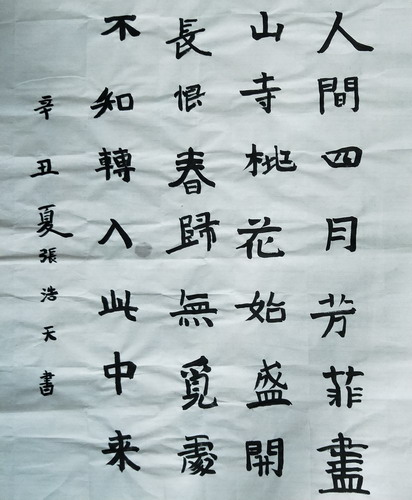 人間四月芳菲盡
山寺桃花始盛開
長恨春歸無覓處
不知轉入此中来
辛丑夏張浩天書